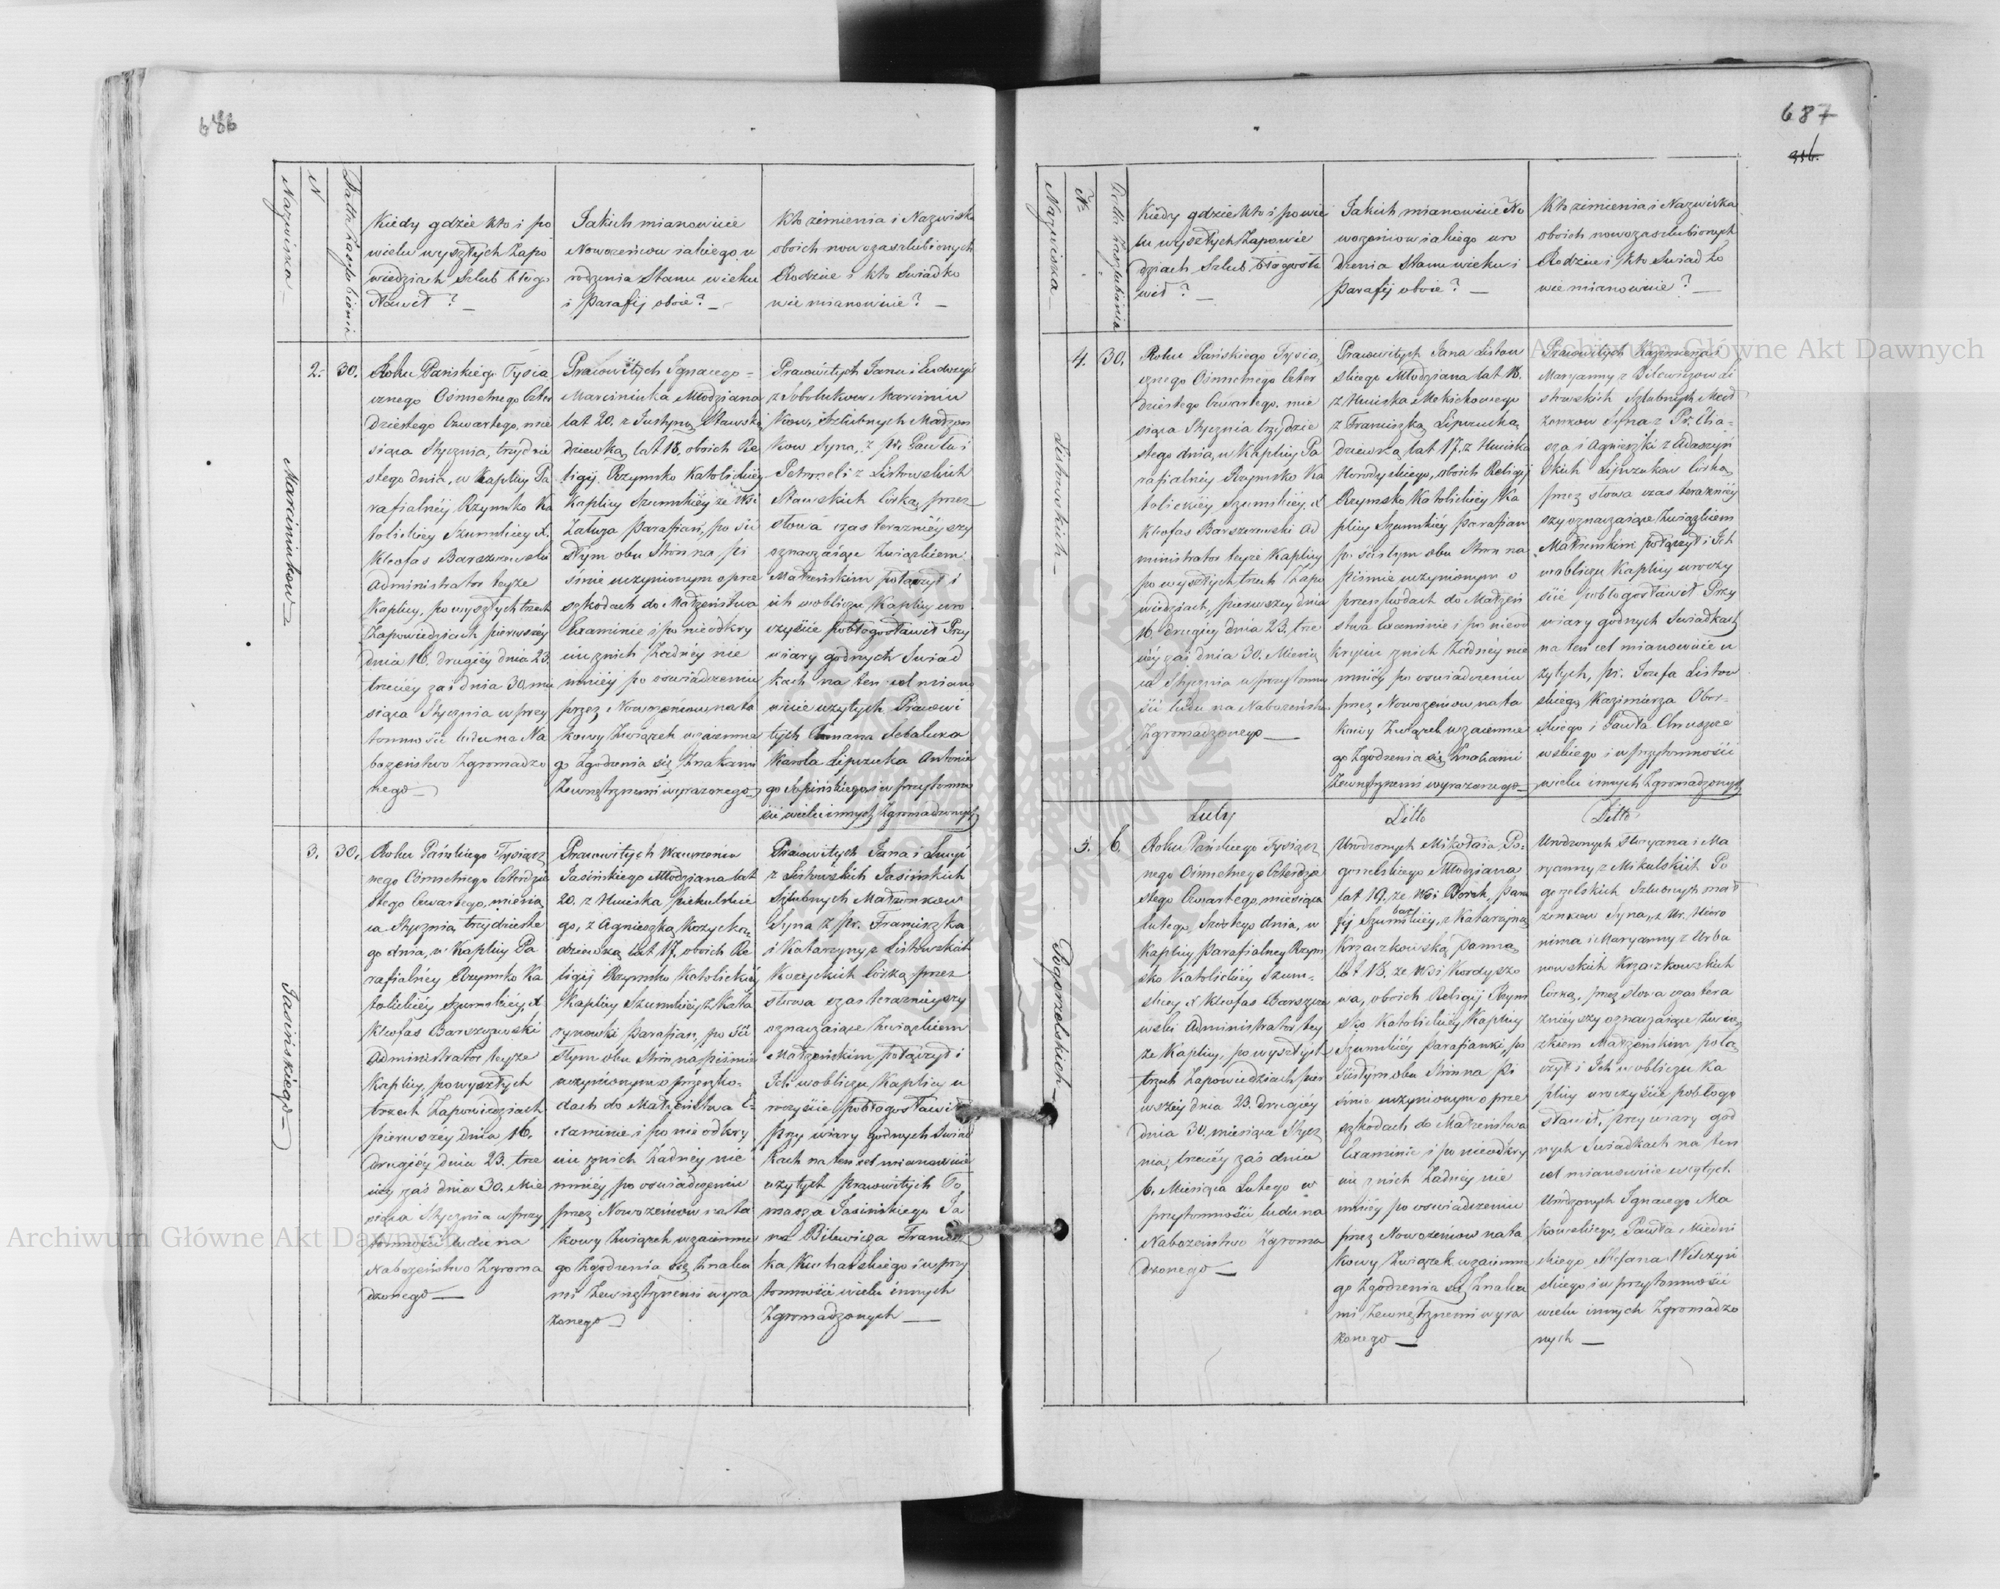 686
Nazwiska
N
Datta Zaszlubienia
Kiedy gdzie kto i po
wielu wyszłych Zapo
wiedziach Szlub błogo
sławił ?
Jakich mianowicie
Nowożeńców iakiego u
rodzenia Stanu wieku
i Parafij oboie ?
Kto zimienia i Nazwiska
oboich nowozaszlubionych
Rodzice i kto Swiadko
wie mianowicie ?
Marciniuków
2. 30.
Roku Pańskiego Tysią
cznego Ośmsetnego Czter
dziestego Czwartego, mie
siąca Stycznia, trzydzie
stego dnia, w Kaplicy Pa
rafialnéy Rzymsko Ka
tolickiey Szumskiey X.
Kleofas Barszczewski
Administrator teyże
Kaplicy, po wyszłych trzech
Zapowiedziach pierwszéy
dnia 16. drugiéy dnia 23.
trzeciéy zaś dnia 30. mie
siąca Stycznia w przy
tomności ludu na Na
bożeństwo Zgromadzo
nego
Prawowitych Ignacego
Marciniuka Młodziana
lat 20. z Justyną Stawską
dziewką lat 18. oboich Re
ligij Rzymsko Katolickiéy
Kaplicy Szumskiéy ze Wsi
Załuża Parafian, po Ści
słym obu Stron na pi
śmie uczynionym o prze
szkodach do Małżeństwa
Examinie i po nieodkry
ciu znich Żadnéy nie
mniéy po oswiadczeniu
przez Nowożeńców na ta
kowy Związek wzaiemne
go Zgodzenia się Znakami
Zewnętrznemi wyrażonego
Prawowitych Jana i Ludwigi
z Sobolukow Marciniu
ków, Szlubnych Małżon
ków Syna, z Pr. Pawła i
Petroneli z Listowskich
Stawskich Córką, przez
słowa czas teraznieyszy
oznaczaiące Związkiem
Małżeńskim połączył i
ich wobliczu Kaplicy uro
czyście pobłogosławił Przy
wiary godnych Swiad
kach na ten cel miano
wicie użytych Prawowi
tych Romana Sebaluka
Karola Lipczuka Antonie
go Sopińskiego i w przytomno
ści wielu innych Zgromadzonych
Jasińskiego
3. 30.
Roku Pańskiego Tysiącz
nego Ośmsetnego Czterdzie
stego Czwartego, miesią
ca Stycznia trzydzieste
go dnia, w Kaplicy Pa
rafialnéy Rzymsko Ka
tolickiéy Szumskiéy, X.
Kleofas Barszczewski
Administrator teyże
Kaplicy, po wyszłych
trzech Zapowiedziach
pierwszéy dnia 16.
drugiéy dnia 23. trze
ciéy zaś dnia 30. Mie
siąca Stycznia w przy
tomności ludu na
Nabożeństwo Zgroma
dzonego
Prawowitych Wawrzenca
Jasińskiego Młodziana lat
20. z Huciska Pikulskie
go, z Agnieszką Kozycką
dziewką lat 17. oboich Re
ligij Rzymsko Katolickiéy
Kaplicy Szumskiéy z Kata
rynowki Parafian, po Ści
słym obu Stron, na piśmie
uczynionym o przeszko
dach do Małżeństwa E
xaminie i po nie odkry
ciu znich Żadnéy nie
mniéy po oswiadczeniu
przez Nowożeńców na ta
kowy Związek wzaiemne
go Zgodzenia się Znaka
mi Zewnętrznemi wyra
żonego
Prawowitych Jana i Łucyi
z Listowskich Jasińskich
Szlubnych Małżonkow
Syna z Pr. Franciszka
i Katarzyny z Listowskich
Kozyckich Córką, przez
słowa czas teraznieyszy
oznaczaiące Związkiem
Małżeńskim, połączył i
Ich wobliczu Kaplicy u
roczyście pobłogosławił
przy wiary godnych Swiad
kach na ten cel mianowicie
użytych Prawowitych To
masza Jasińskiego Ja
na Bilewicza Francisz
ka Kucharskiego i w przy
tomności wielu innych
Zgromadzonych
687
Nazwiska
N
Datta Zaszlubienia
Kiedy gdzie kto i po wie
lu wyszłych Zapowie
dziach Szlub błogosła
wił ?
Jakich mianowicie No
wożeńców iakiego uro
dzenia Stanu wieku i
Parafij oboie ?
Kto zimienia i Nazwiska
oboich nowozaszlubionych
Rodzice i kto Swiadko
wie mianowicie ?
Listowskich
4. 30.
Roku Pańskiego Tysią
cznego Ośmsetnego Czter
dziestego Czwartego, mie
siąca Stycznia trzydzie
stego dnia, w Kaplicy Pa
rafialnéy Rzymsko Ka
tolickiéy Szumskiéy, X
Kleofas Barszczewski Ad
ministrator teyże Kaplicy
po wyszłych trzech Zapo
wiedziach, pierwszey dnia
16. drugiéy dnia 23. trze
ciéy zaś dnia 30. Miesią
ca Stycznia w przytomno
ści ludu na Nabożeństwo
Zgromadzonego
Prawowitych Jana Listow
skiego Młodziana lat 18.
z Huciska Mokickowego
z Franciszką Lipczuką
dziewką lat 17. z Huciska
Horodyskiego, oboich Religij
Rzymsko Katolickiéy Ka
plicy Szumskiéy Parafian
po ścisłym obu Stron na
piśmie uczynionym o
przeszkodach do Małżeń
stwa Examinie i po nieod
kryciu znich Żadnéy nie
mniéy po oswiadczeniu
przez Nowożeńców na ta
kowy Związek wzaiemne
go Zgodzenia się Znakami
Zewnętrznemi wyrażonego
Prawowitych Kazimierza
Maryanny z Bilewiczow Li
stowskich Szlubnych Mał
żonkow Syna z Pr. Elia
sza i Agnieszki z Adaszyń
skich Lipczukow Córką,
przez słowa czas terazniéy
szy oznaczaiące Związkiem
Małżeńskim połączył i Ich
wobliczu Kaplicy uroczy
ście pobłogosławił Przy
wiary godnych Swiadkach
na ten cel mianowicie u
żytych, Pr. Jozefa Listow
skiego, Kazimierza Obor
skiego i Pawła Chruszcze
wskiego i w przytomności
wielu innych Zgromadzonych
Luty
Ditto
Ditto
Pogorzelskich
5. 6.
Roku Pańskiego Tysiącz
nego Ośmsetnego Czterdzie
stego Czwartego, miesiąca
Lutego, Szóstego dnia, w
Kaplicy Parafialney Rzym
sko Katolickiéy Szum
skiey X Kleofas Barszcze
wski Administrator tey
że Kaplicy, po wyszłych
trzech Zapowiedziach, pier
wszéy dnia 23. drugiéy
dnia 30. miesiąca Stycz
nia, trzeciéy zaś dnia
6. Miesiąca Lutego w
przytomności ludu na
Nabożeństwo Zgroma
dzonego
Urodzonych Mikołaia Po
gorzelskiego Młodziana
lat 19. ze Wsi Borek, Para
fij Szumbarskiéy, z Katarzyną
Krzaczkowską, Panną
lat 18. ze Wsi Kordyszo
wa, oboich Religij Rzym
sko Katolickiéy Kaplicy
Szumskiéy Parafianki, po
ścisłym obu Stron na Pi
śmie uczynionym o prze
szkodach do Małżeństwa
Examinie i po nieodkry
ciu znich Żadnéy nie
mniéy po oswiadczeniu
przez Nowożeńców na ta
kowy Związek wzaiemne
go Zgodzenia się Znaka
mi Zewnętrznemi wyra
żonego
Urodzonych Floryana i Ma
ryanny z Mikulskich Po
gorzelskich Szlubnych Mał
żonkow Syna, z Ur. Hiero
nima i Maryanny z Urba
nowskich Krzaczkowskich
Córką, przez słowa czas tera
znieyszy oznaczaiące Zwią
zkiem Małżeńskim, połą
czył i Ich w obliczu Ka
plicy uroczyście pobłogo
sławił, przy wiary god
nych Swiadkach na ten
cel mianowicie użytych
Urodzonych Ignacego Ma
kowskiego, Pawła Miedni
skiego Stefana Wilczyń
skiego i w przytomności
wielu innych Zgromadzo
nych
Archiwum Główne Akt Dawnych
Archiwum Główne Akt Dawnych